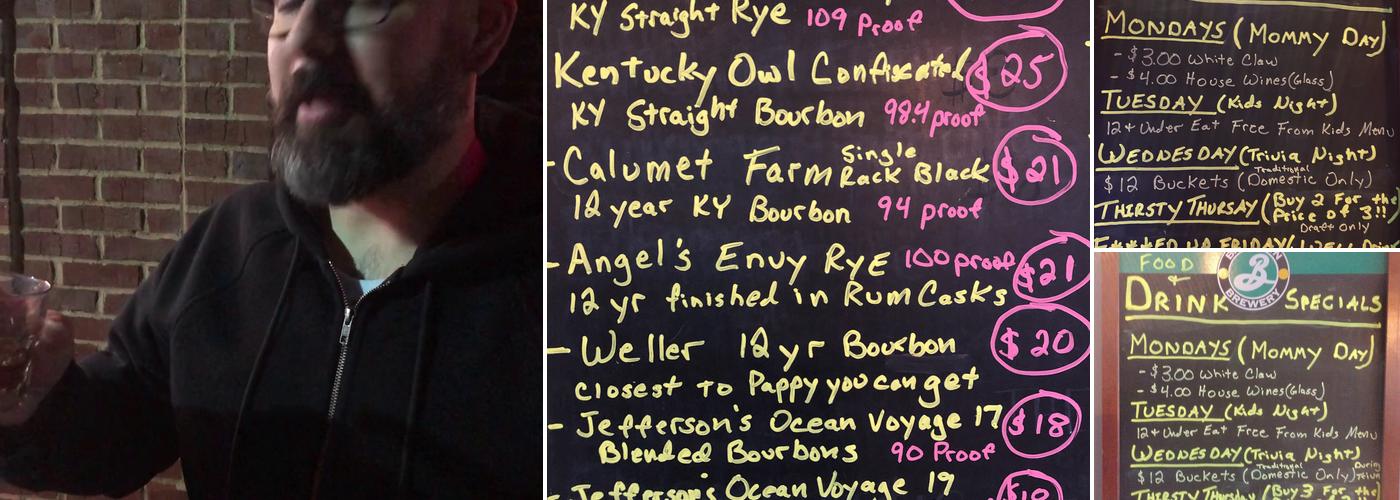 KY Straight Rye 109 Proof
Kentucky Owl Confiscated $25
KY Straight Bourbon 98.4 proof
- Calumet Farm Single Rack Black $21
12 year KY Bourbon 94 proof
- Angel's Envy Rye 100 proof $21
12 yr finished in Rum Casks
- Weller 12 yr Bourbon $20
closest to Pappy you can get
- Jefferson's Ocean Voyage 17 $18
Blended Bourbons 90 Proof
- Jefferson's Ocean Voyage 19
MONDAYS (MOMMY DAY)
- $3.00 White Claw
- $4.00 House Wines (Glass)
TUESDAY (Kids Night)
12 + Under Eat Free From Kids Menu
WEDNESDAY (Trivia Night)
$12 Buckets (Traditional Domestic Only)
THIRSTY THURSAY (Buy 2 For the Price of 3!!
Draft Only
F***ED UP FRIDAY
FOOD
&
DRINK SPECIALS
BREWERY
MONDAYS (MOMMY DAY)
- $3.00 White Claw
- $4.00 House Wines (Glass)
TUESDAY (Kids Night)
12 + Under Eat Free From Kids Menu
WEDNESDAY (Trivia Night)
$12 Buckets (Traditional Domestic Only) During